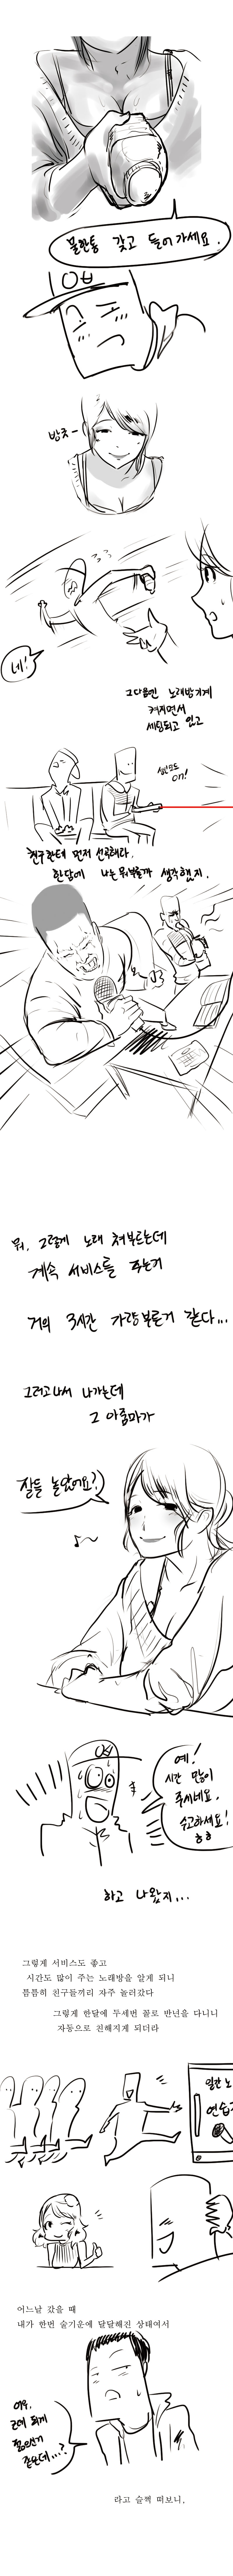 물한통 갖고 들어가세요.
방긋-
네!
그다음엔 노래방기계
켜지면서
세팅되고 있고
ON!
친구한테 먼저 선곡해라.
한담에 나는 뭐부를까 생각했지.
뭐, 그렇게 노래 쳐부르는데
계속 서비스를 주는거
거의 3시간 가량부른거 같다...
그러고나서 나가는데
그 아줌마가
잘들 놀았어요?
예!
시간 많이
주시네요.
수고하세요!
ㅎㅎ
하고 나왔지...
그렇게 서비스도 좋고
시간도 많이 주는 노래방을 알게 되니
틈틈히 친구들끼리 자주 놀러갔다
그렇게 한달에 두세번 꼴로 반년을 다니니
자동으로 친해지게 되더라
일간 노
연습
어느날 갔을 때
내가 한번 술기운에 달달해진 상태여서
이우,
근데 되게
젊으신거
같은데...?
라고 슬쩍 떠보니,